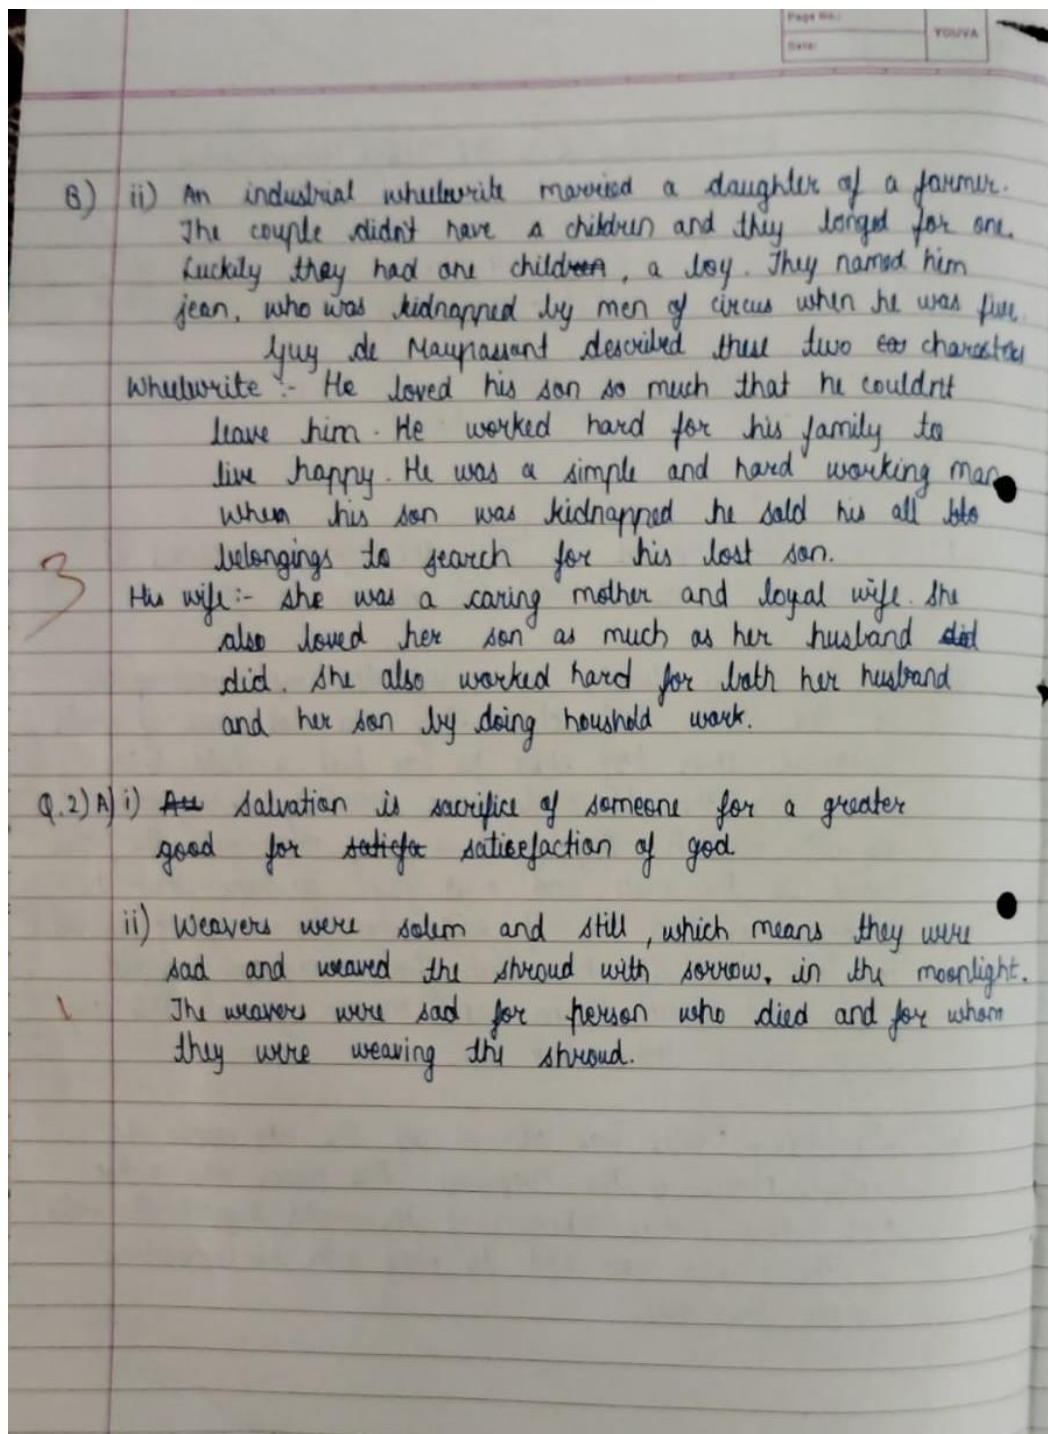 Page No.:
Date:
YOUVA
B) ii) An industrial wheelwrite married a daughter of a farmer.
The couple didn't have a children and they longed for one.
Luckily they had one children, a boy. They named him
jean, who was kidnapped by men of circus when he was five
Guy de Maupassant described these two charactres
Wheelwrite :- He loved his son so much that he couldn't
leave him. He worked hard for his family to
live happy. He was a simple and hard working man
when his son was kidnapped he sold his all blo
belongings to search for his lost son.
3
His wife :- she was a caring mother and loyal wife. She
also loved her son as much as her husband did
did. She also worked hard for both her husband
and her son by doing houshold work.
Q.2) A) i) All Salvation is sacrifice of someone for a greater
good for satisfa satisefaction of god.
ii) Weavers were solem and still, which means they were
sad and weaved the shroud with sorrow, in the moonlight.
1
The weavers were sad for person who died and for whom
they were weaving the shroud.